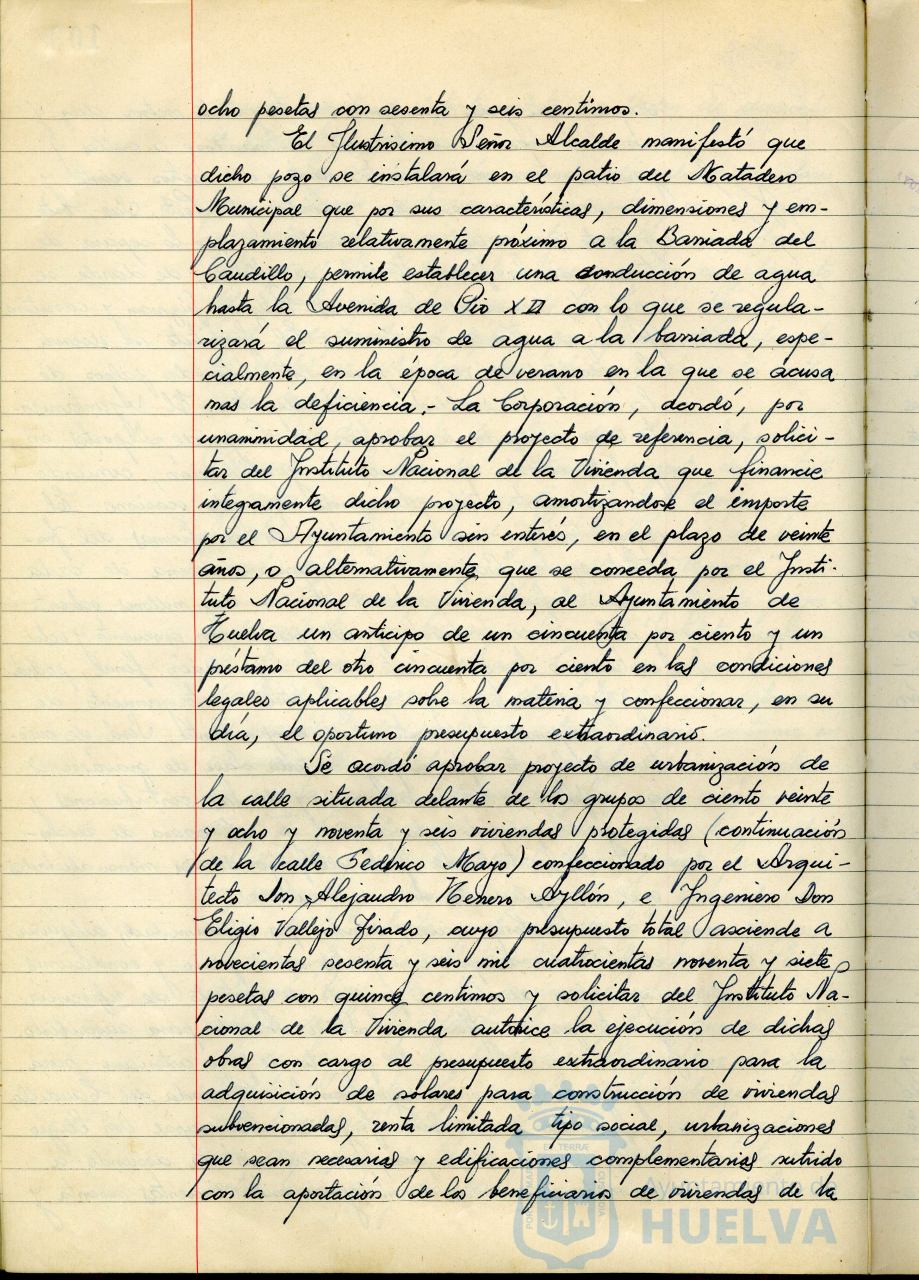 ocho pesetas con sesenta y seis centimos.
El Ilustrisimo Señor Alcalde manifestó que
dicho pozo se instalará en el patio del Matadero
Municipal que por sus características, dimensiones y em-
plazamiento relativamente próximo a la Barriada del
Caudillo, permite establecer una conducción de agua
hasta la Avenida de Pio XII con lo que se regula-
rizará el suministro de agua a la barriada, espe-
cialmente, en la época de verano en la que se acusa
mas la deficiencia.- La Corporación, acordó, por
unanimidad, aprobar el proyecto de referencia, solici-
tar del Instituto Nacional de la Vivienda que financie
integramente dicho proyecto, amortizandose el importe
por el Ayuntamiento sin interés, en el plazo de veinte
años, o alternativamente, que se conceda por el Insti-
tuto Nacional de la Vivienda, al Ayuntamiento de
Huelva un anticipo de un cincuenta por ciento y un
préstamo del otro cincuenta por ciento en las condiciones
legales aplicables sobre la materia y confeccionar, en su
día, el oportuno presupuesto extraordinario.
Se acordó aprobar proyecto de urbanización de
la calle situada delante de los grupos de ciento veinte
y ocho y noventa y seis viviendas protegidas (continuación
de la calle Federico Mayo) confeccionado por el Arqui-
tecto Don Alejandro Herrero Ayllón, e Ingeniero Don
Eligio Vallejo Tirado, cuyo presupuesto total asciende a
novecientas sesenta y seis mil cuatrocientas noventa y siete
pesetas con quince centimos y solicitar del Instituto Na-
cional de la Vivienda autorice la ejecución de dichas
obras con cargo al presupuesto extraordinario para la
adquisición de solares para construcción de viviendas
subvencionadas, renta limitada tipo social, urbanizaciones
que sean necesarias y edificaciones complementarias nutrido
con la aportación de los beneficiarios de viviendas de la
Ayuntamiento de
HUELVA